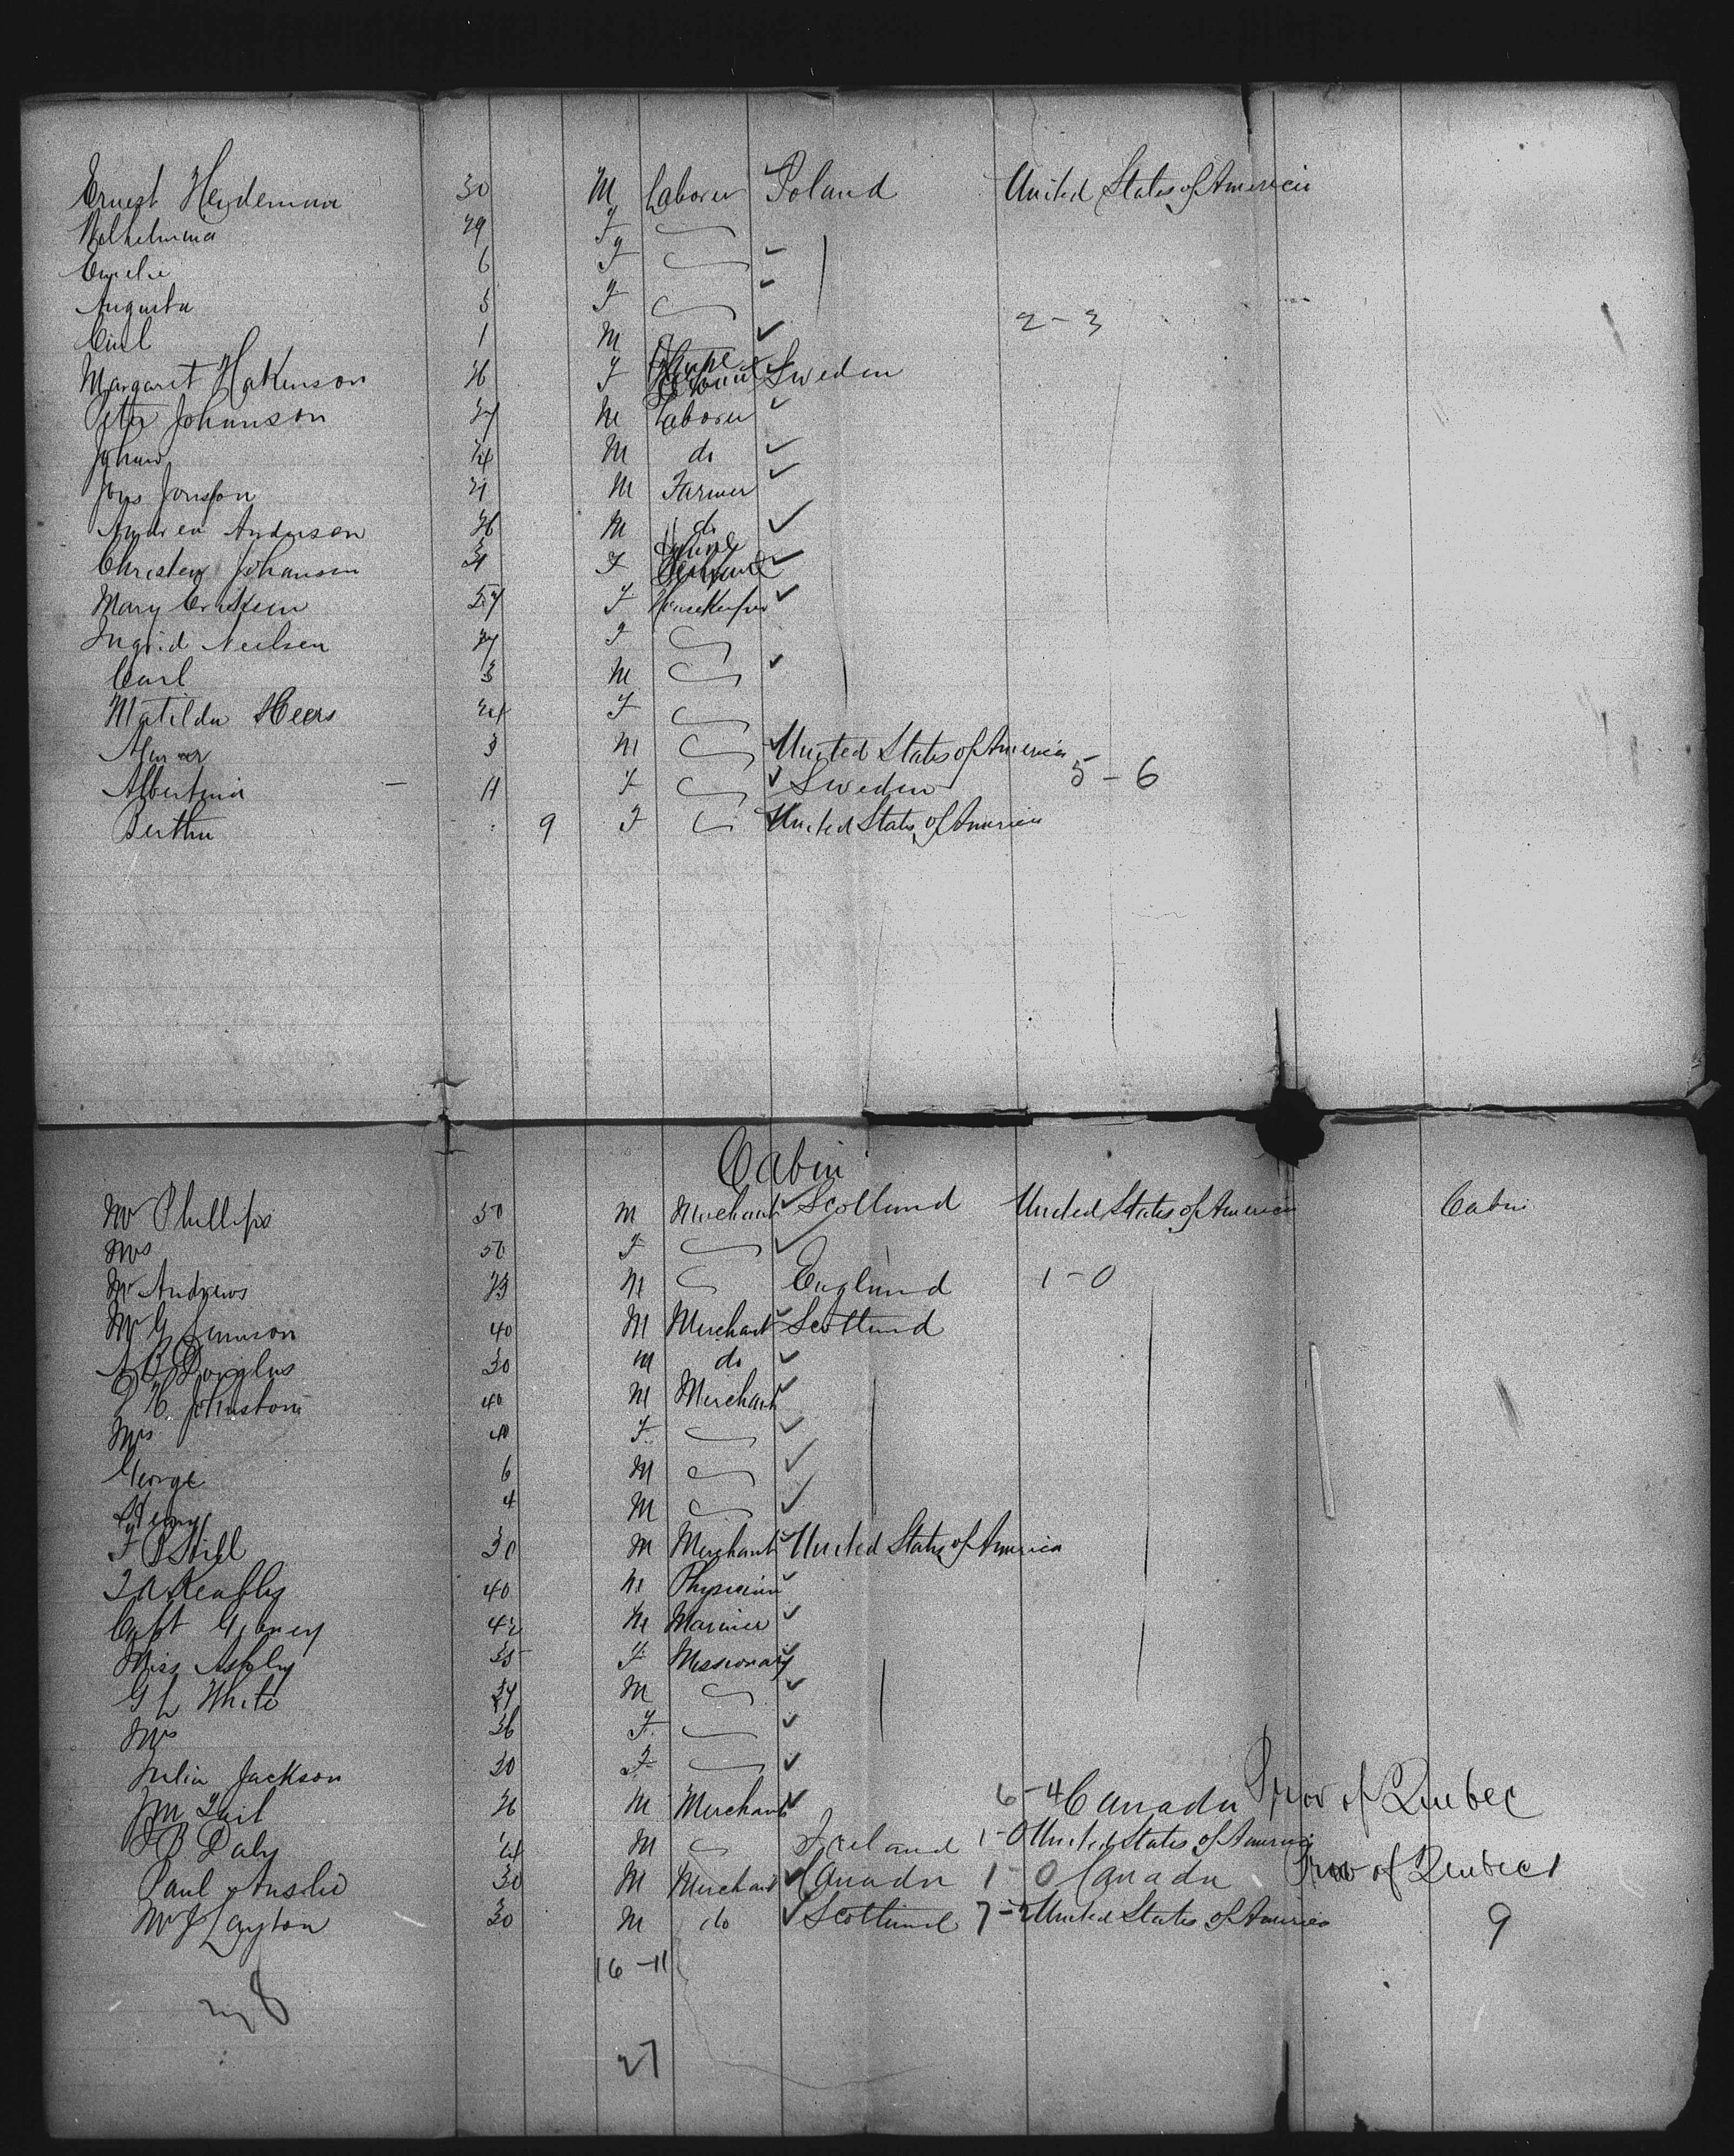 Ernest Heydeman 30 M Laborer Poland United States of America
Wilhelmina 29 F
Emelie 6 F
Augusta 5 F
Carl 1 M 2-3
Margaret Hakenson 26 F Sweden
Peter Johanson 27 M Laborer
Johan 24 M do
Jons Jonsson 21 M Farmer
Andrew Anderson 26 M do
Christen Johansen F
Mary F Housekeeper
Ingrid Neilsen 27 F
Carl 3 M
Matilda 24 F
3 M United States of America
Albertina 11 F Sweden 5-6
Bertha 9 F United States of America
Cabin
Mr Phillips 50 M Merchant Scotland United States of America Cabin
Mrs 50 F
Mr Andrews 23 M England 1-0
Mr G 40 M Merchant Scotland
A B Douglas 30 M do
Johnston 40 M Merchant
Mrs 40 F
George 6 M
Henry 4 M
F B Still 30 M Merchant United States of America
40 M Physician
Capt Gibney 42 M Mariner
Miss Ashley 35 F Missionary
G L White M
Mrs 36 F
Julia Jackson 20 F
26 M Merchant 6-4 Canada Prov of Quebec
Daly 24 M Ireland 1-0 United States of America
Paul Anslie 30 M Merchant Canada 1-0 Canada Prov of Quebec 1
Mr J Layton 30 M do Scotland 7-2 United States of America 9
16-11
27